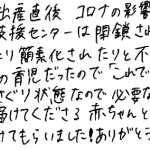 出産直後 コロナの影響
支援センターは開鎖され
たり簡素化されたりと不
の育児だったので「これで
さぐり状態なので必要な
届けてくださる 赤ちゃんと
けてもらいました!ありがとう